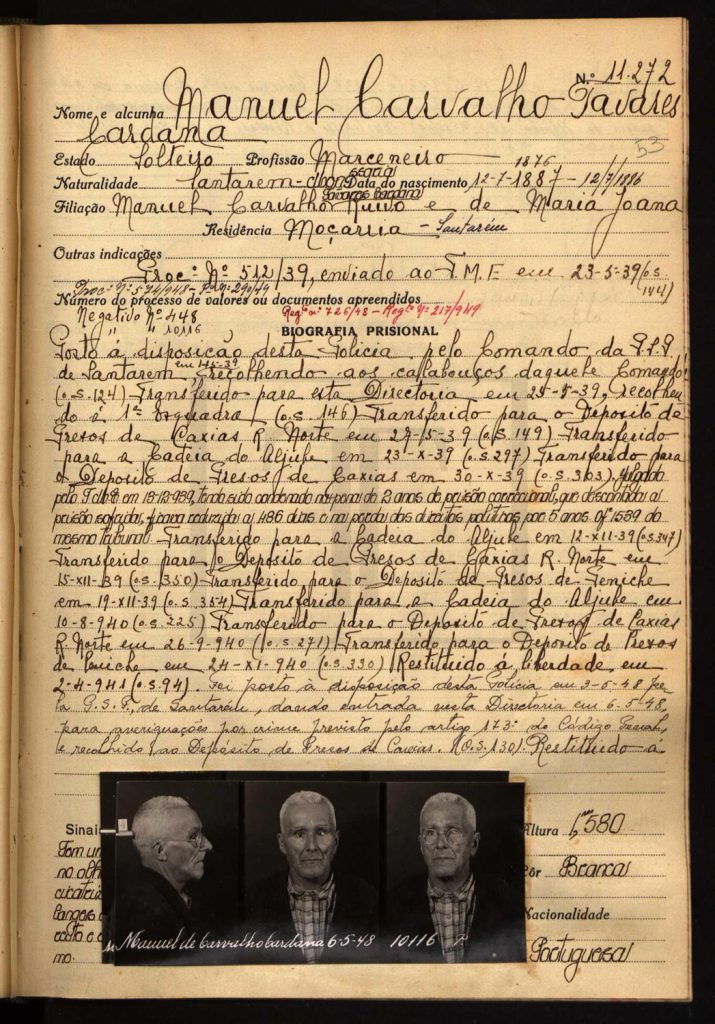 N.º 11.272
Nome e alcunha Manuel Carvalho Tavares
Cardana
53
Estado Solteiro Profissão Marceneiro 1876
Naturalidade Santarem Data do nascimento 12-7-1887 - 12/7/1886
Filiação Manuel Carvalho Ruivo e de Maria Joana
Residência Moçarria - Santarém
Outras indicações
Proc.º Nº 512/39, enviado ao T.M.E. em 23-5-39 (o.s.
144)
Número do processo de valores ou documentos apreendidos
Negativo Nº 448 Regº nº 726/48 - Regº Nº 217/949
" " 10116
BIOGRAFIA PRISIONAL
Posto á disposição desta Policia pelo Comando da P.S.P.
de Santarem, recolhendo aos calabouços daquele Comando
(o.s. 124) Transferido para esta Directoria em 25-5-39, recolhen
do á 1ª esquadra (o.s. 146) Transferido para o Deposito de
Presos de Caxias R. Norte em 27-5-39 (o.s. 149) Transferido
para a Cadeia do Aljube em 23-X-39 (o.s. 297) Transferido para
o Deposito de Presos de Caxias em 30-X-39 (o.s. 303). Julgado
pelo T.M.E. em 13-12-939, tendo sido condenado na pena de 2 anos de prisão correcional, que descontada a
prisão sofrida, ficava reduzida a 486 dias e na perda dos direitos politicos por 5 anos. Of. 1559 do
mesmo tribunal. Transferido para a Cadeia do Aljube em 12-XII-39 (o.s. 347)
Transferido para o Deposito de Presos de Caxias R. Norte em
15-XII-39 (o.s. 350) Transferido para o Deposito de Presos de Peniche
em 19-XII-39 (o.s. 354) Transferido para a Cadeia do Aljube em
10-8-940 (o.s. 225) Transferido para o Deposito de Presos de Caxias
R. Norte em 26-9-940 (o.s. 271) Transferido para o Deposito de Presos
de Peniche em 24-XI-940 (o.s. 330) Restituido á liberdade em
2-4-941 (o.s. 94). Foi posto à disposição desta Polícia em 3-5-48 pe-
la P.S.P., de Santarém, dando entrada nesta Directoria em 6-5-48,
para averiguações por crime previsto pelo artigo 173º do Código Penal,
e recolhido ao Depósito de Presos de Caxias. (O.S. 130). Restituido á
Sinai
Tem um
no olho
cicatriz
rosto e
mo.
Altura 1,580
Côr Branca
Nacionalidade
Portuguesa
Manuel de Carvalho Cardana 6-5-48 10116 P